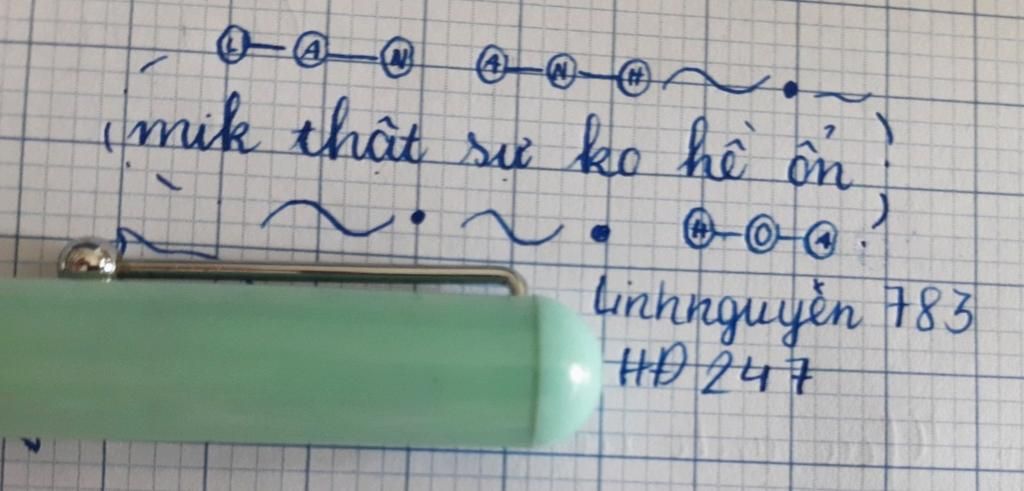 LAN ANH
mik thật sự ko hề ổn
HOA
linhnguyễn 783
HĐ 247